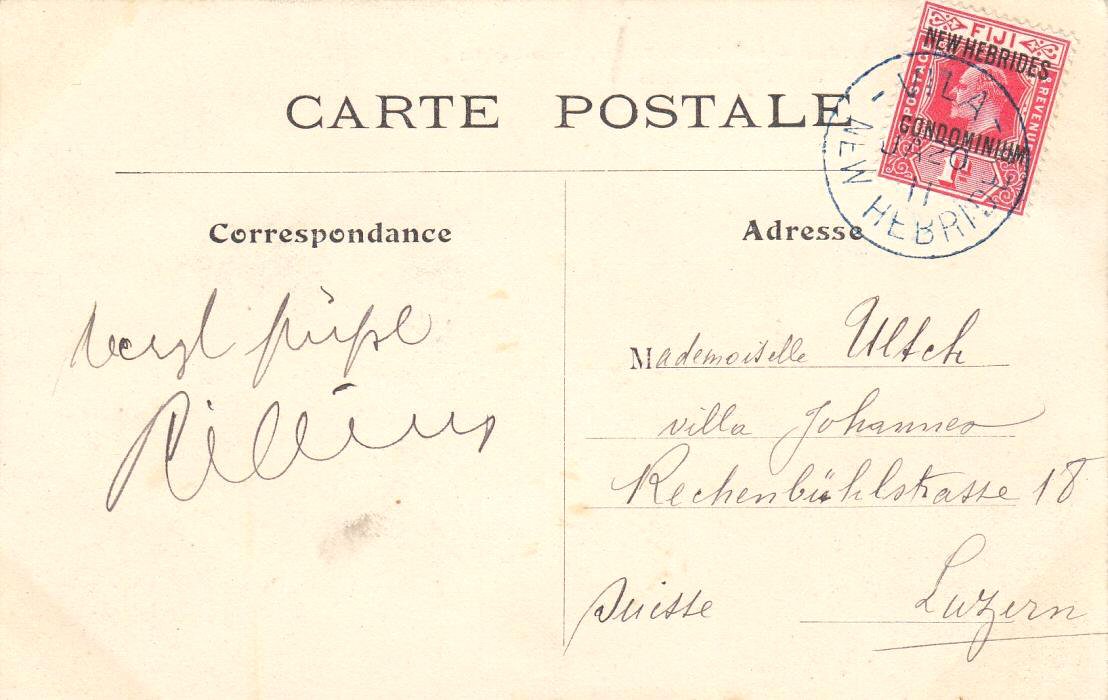 CARTE POSTALE
FIJI
NEW HEBRIDES
POSTAGE
REVENUE
CONDOMINIUM
1d
VILA
JA 20
11
NEW HEBRIDES
Correspondance
Adresse
Mademoiselle Ultch
villa Johannes
Rechenbühlstrasse 18
Luzern
Suisse